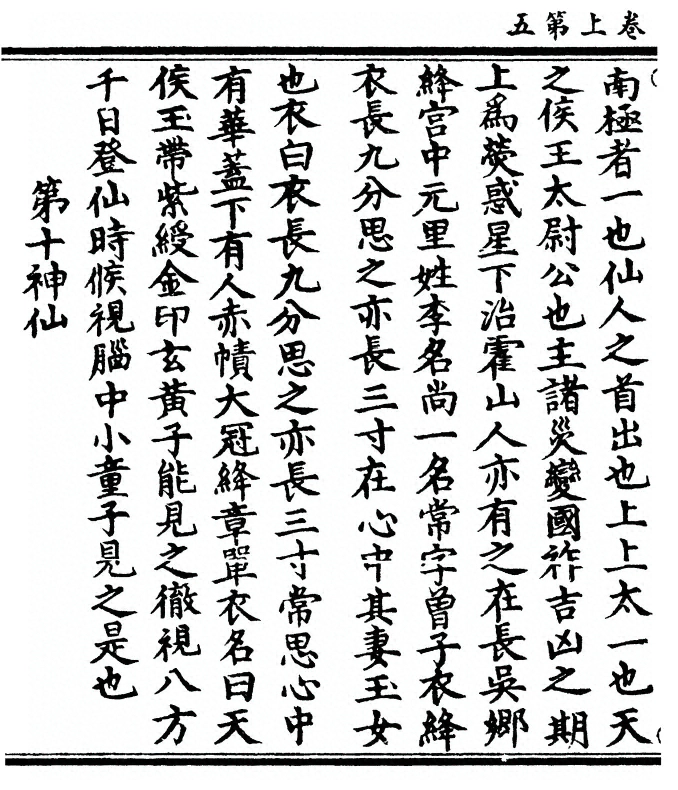 卷上第五
南極者一也仙人之首出也上上太一也天
之侯王太尉公也主諸災變國祚吉凶之期
上爲熒惑星下治霍山人亦有之在長吳鄉
絳宮中元里姓李名尚一名常字曾子衣絳
衣長九分思之亦長三寸在心中其妻玉女
也衣白衣長九分思之亦長三寸常思心中
有華蓋下有人赤幘大冠絳章單衣名曰天
侯玉帶紫綬金印玄黃子能見之徹視八方
千日登仙時候視腦中小童子見之是也
第十神仙